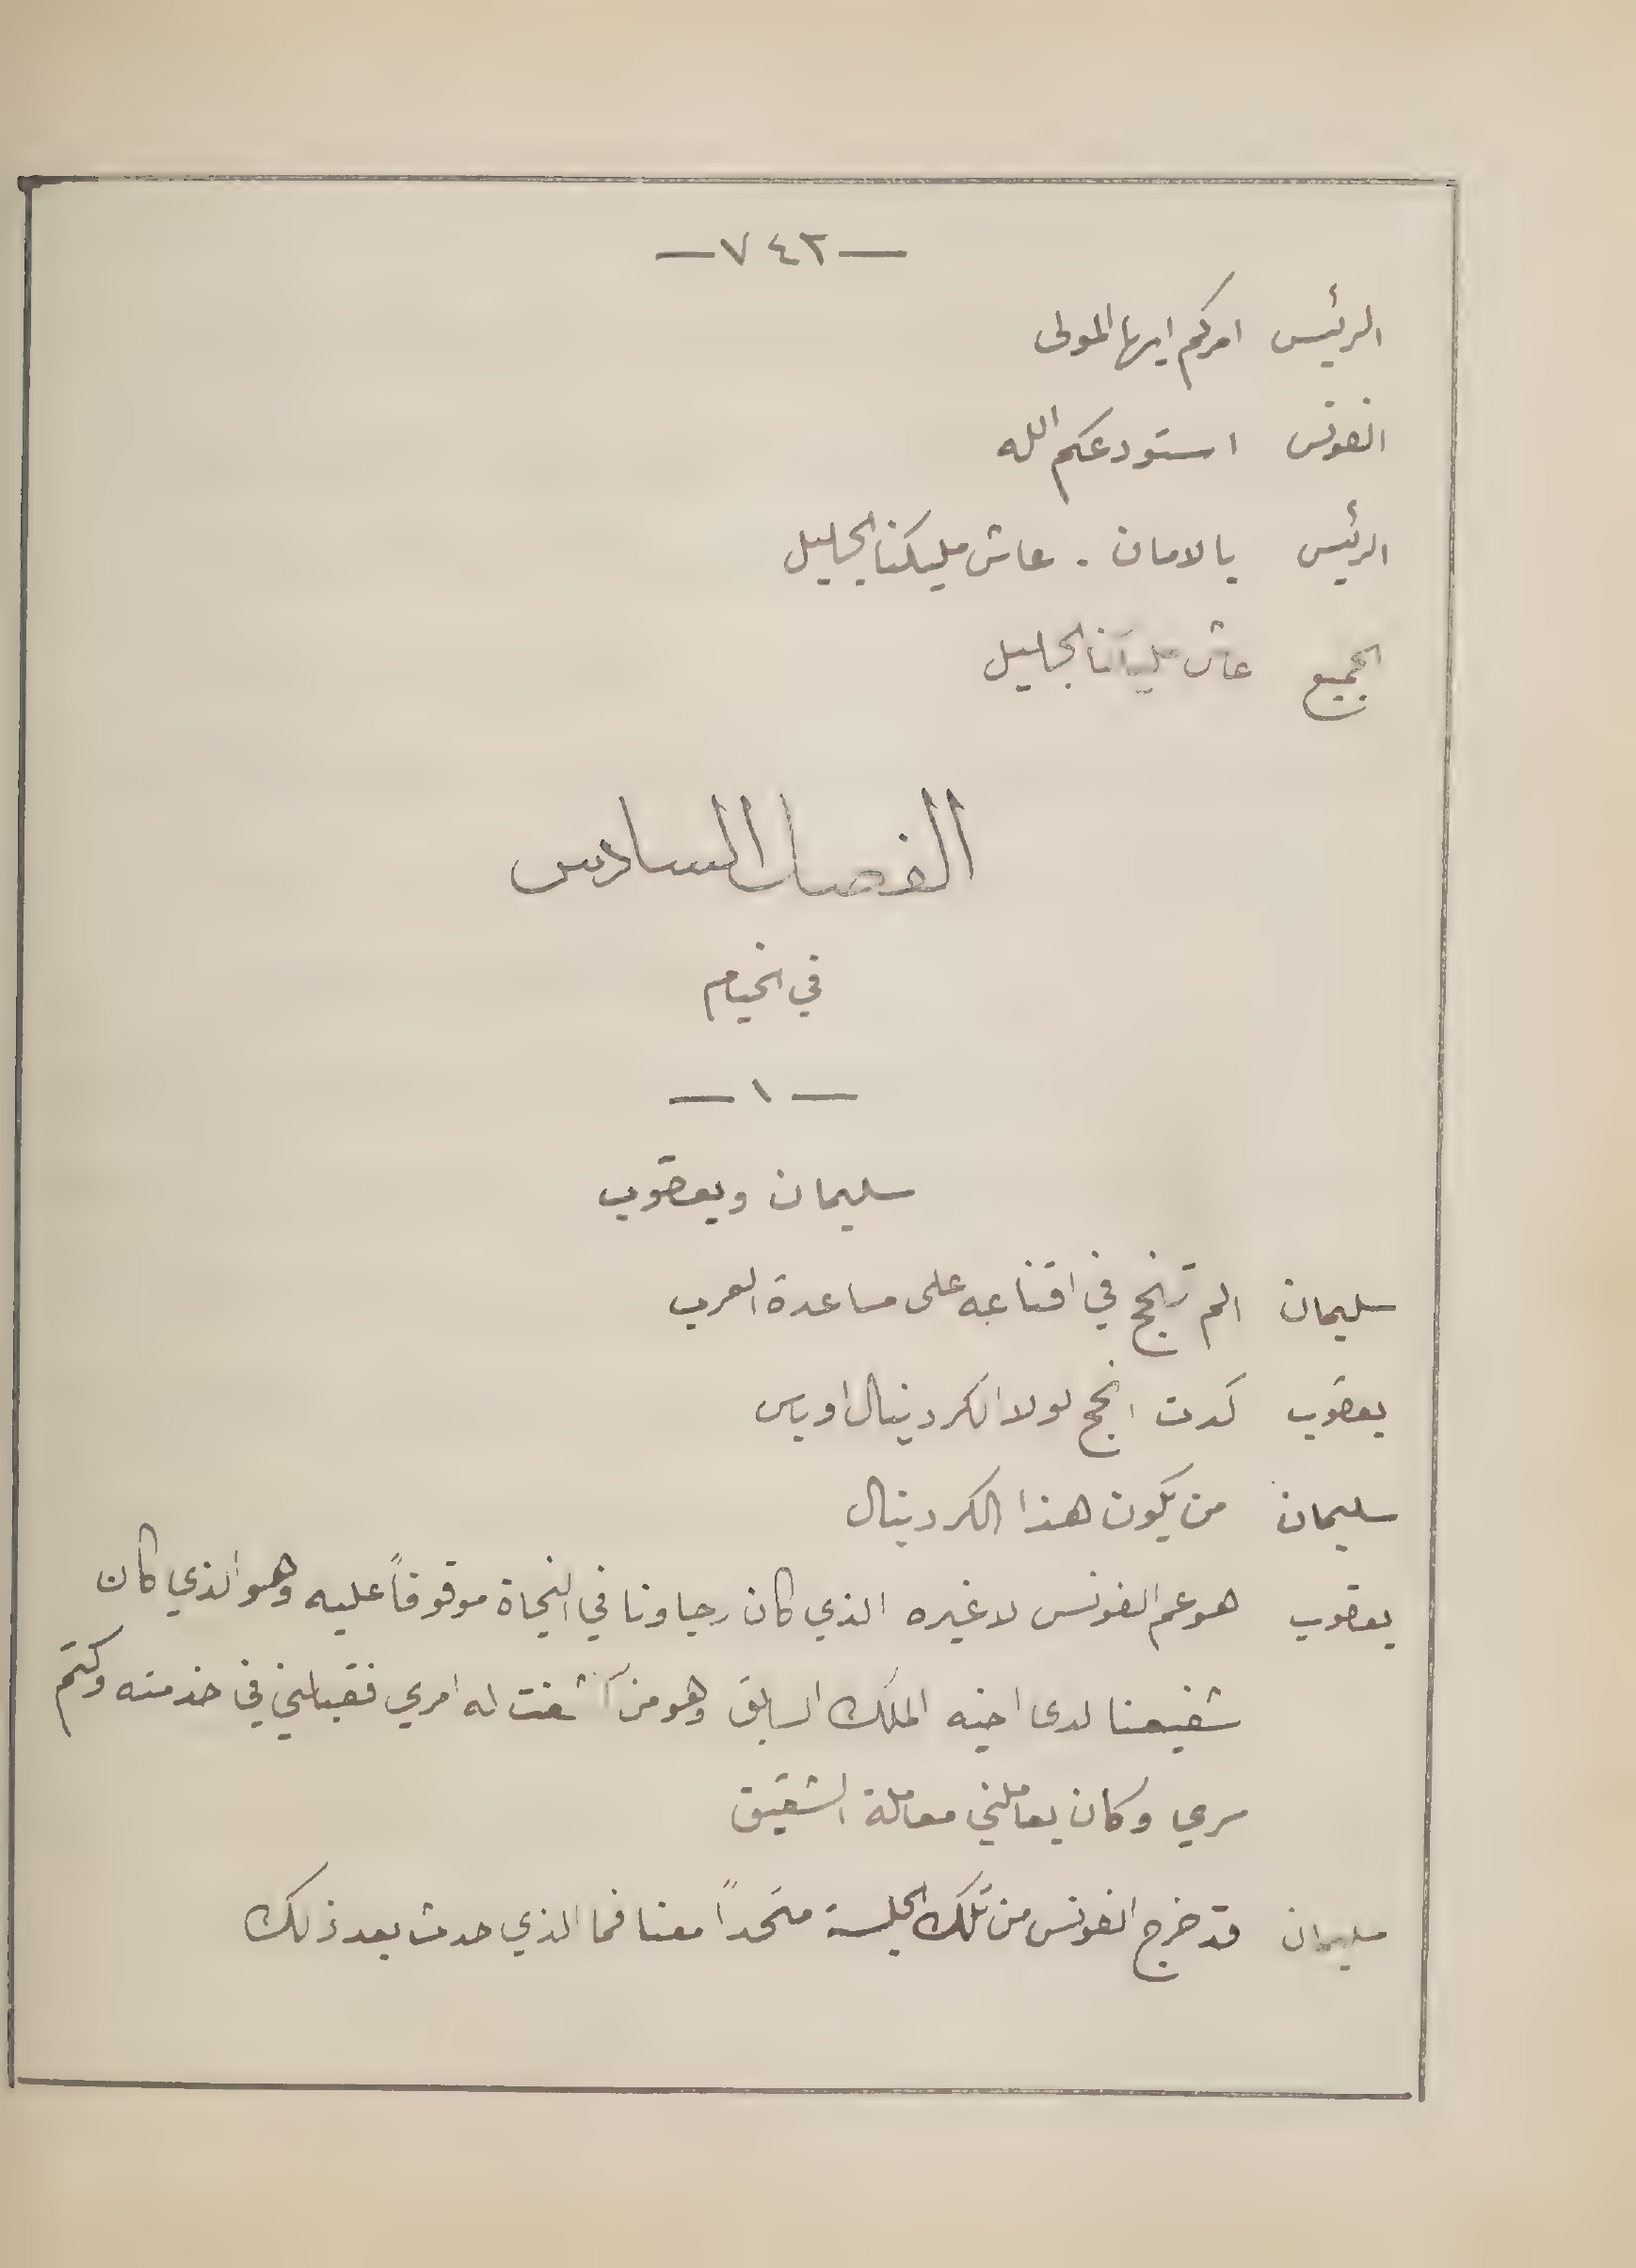 —٧٤٢—
الرئيس امركم ايها المولى
الفونس استودعكم الله
الرئيس بالامان . عاش مليكنا الجليل
الجميع عاش مليكنا الجليل
الفصل السادس
في الخيام
— ١ —
سليمان ويعقوب
سليمان الم تنجح في اقناعه على مساعدة العرب
يعقوب كدت انجح لولا الكردينال اوباس
سليمان من يكون هذا الكردينال
يعقوب هو عم الفونس لا غيره الذي كان رجاونا في النجاة موقوفاً عليه وهو الذي كان
شفيعنا لدى اخيه الملك السابق وهو من كشفت له امري فقبلني في خدمته وكتم
سري وكان يعاملني معاملة الشقيق
سليمان قد خرج الفونس من تلك الجلسة متحداً معنا فما الذي حدث بعد ذلك